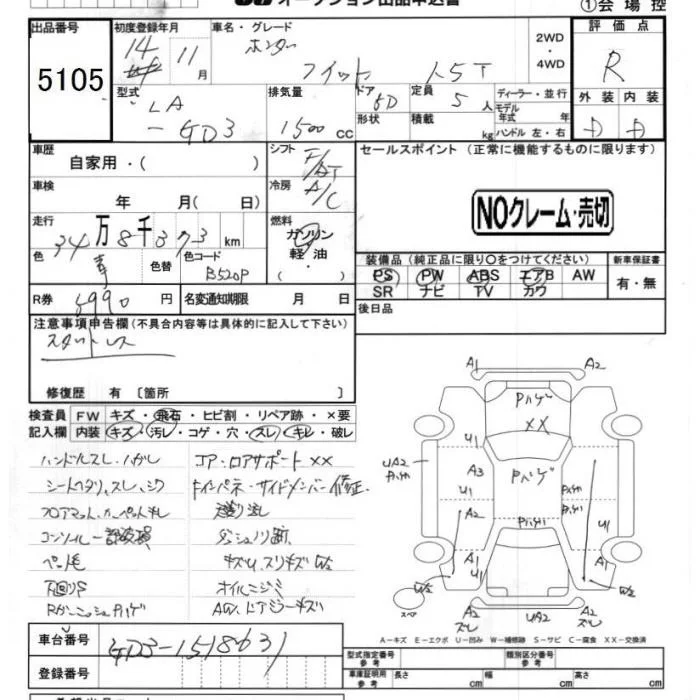 オークション出品申込書
①会場控
出品番号 初度登録年月 車名・グレード 評価点
5105
14年 11月
ホンダ
フィット 1.5T
2WD
・
4WD
R
型式 排気量 ドア 定員 ディーラー・並行 外装 内装
LA
-GD3
1500cc
5D
5人
モデル年式 年
D D
形状 積載 kg ハンドル 左・右
車歴 シフト F/AT セールスポイント(正常に機能するものに限ります)
自家用・( )
車検 冷房 A/C
年 月( 日)
NOクレーム・売切
走行 燃料
34万8千373km
ガソリン
軽油
色 色替 色コード
青 B520P
装備品(純正品に限り○をつけてください) 新車保証書
PS PW ABS エアB AW 有・無
SR ナビ TV カワ
R券 8990円 名変通知期限 月 日
後日品
注意事項申告欄(不具合内容等は具体的に記入して下さい)
スタットレス
修復歴 有 [箇所 ]
検査員 FW キズ・飛石・ヒビ割・リペア跡・×要
記入欄 内装 キズ・汚レ・コゲ・穴・スレ・キレ・破レ
ハンドルスレ・ハガレ
コア・ロアサポートXX
シートヘタリ、スレ、シワ
インパネ・サイドメンバー修正
フロアマット、カーペットキレ
コンソール一部破損
キズU、スリキズW2
ペット毛
下回りS
オイルニジミ
A1 A2
Pハゲ
XX
U1
UA2
Pハゲ
A3
U1
Pハゲ
U1
A2
A1
A1
W2 W2
スペア
A2
ズレ
UA2
A2
ズレ
A-キズ E-エクボ U-凹み W-補修跡 S-サビ C-腐食 XX-交換済
車台番号 GD3-1518631
登録番号
型式指定番号 参考 類別区分番号 参考
車庫証明用 参考 長さ cm 幅 cm 高さ cm